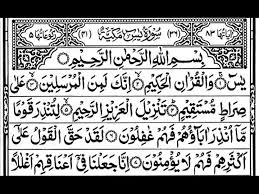 اٰيَاتُهَا ٨٣ (٣٦) سُوْرَةُ يٰسٓ مَكِّيَّةٌ (٤١) رُكُوْعَاتُهَا ٥
بِسْمِ اللّٰهِ الرَّحْمٰنِ الرَّحِيْمِ
يٰسٓ ۝ وَالْقُرْاٰنِ الْحَكِيْمِ ۝ اِنَّكَ لَمِنَ الْمُرْسَلِيْنَ ۝ عَلٰى
صِرَاطٍ مُّسْتَقِيْمٍ ۝ تَنْزِيْلَ الْعَزِيْزِ الرَّحِيْمِ ۝ لِتُنْذِرَ قَوْمًا
مَّاۤ اُنْذِرَ اٰبَآؤُهُمْ فَهُمْ غٰفِلُوْنَ ۝ لَقَدْ حَقَّ الْقَوْلُ عَلٰۤى
اَكْثَرِهِمْ فَهُمْ لَا يُؤْمِنُوْنَ ۝ اِنَّا جَعَلْنَا فِيْۤ اَعْنَاقِهِمْ اَغْلٰلًا